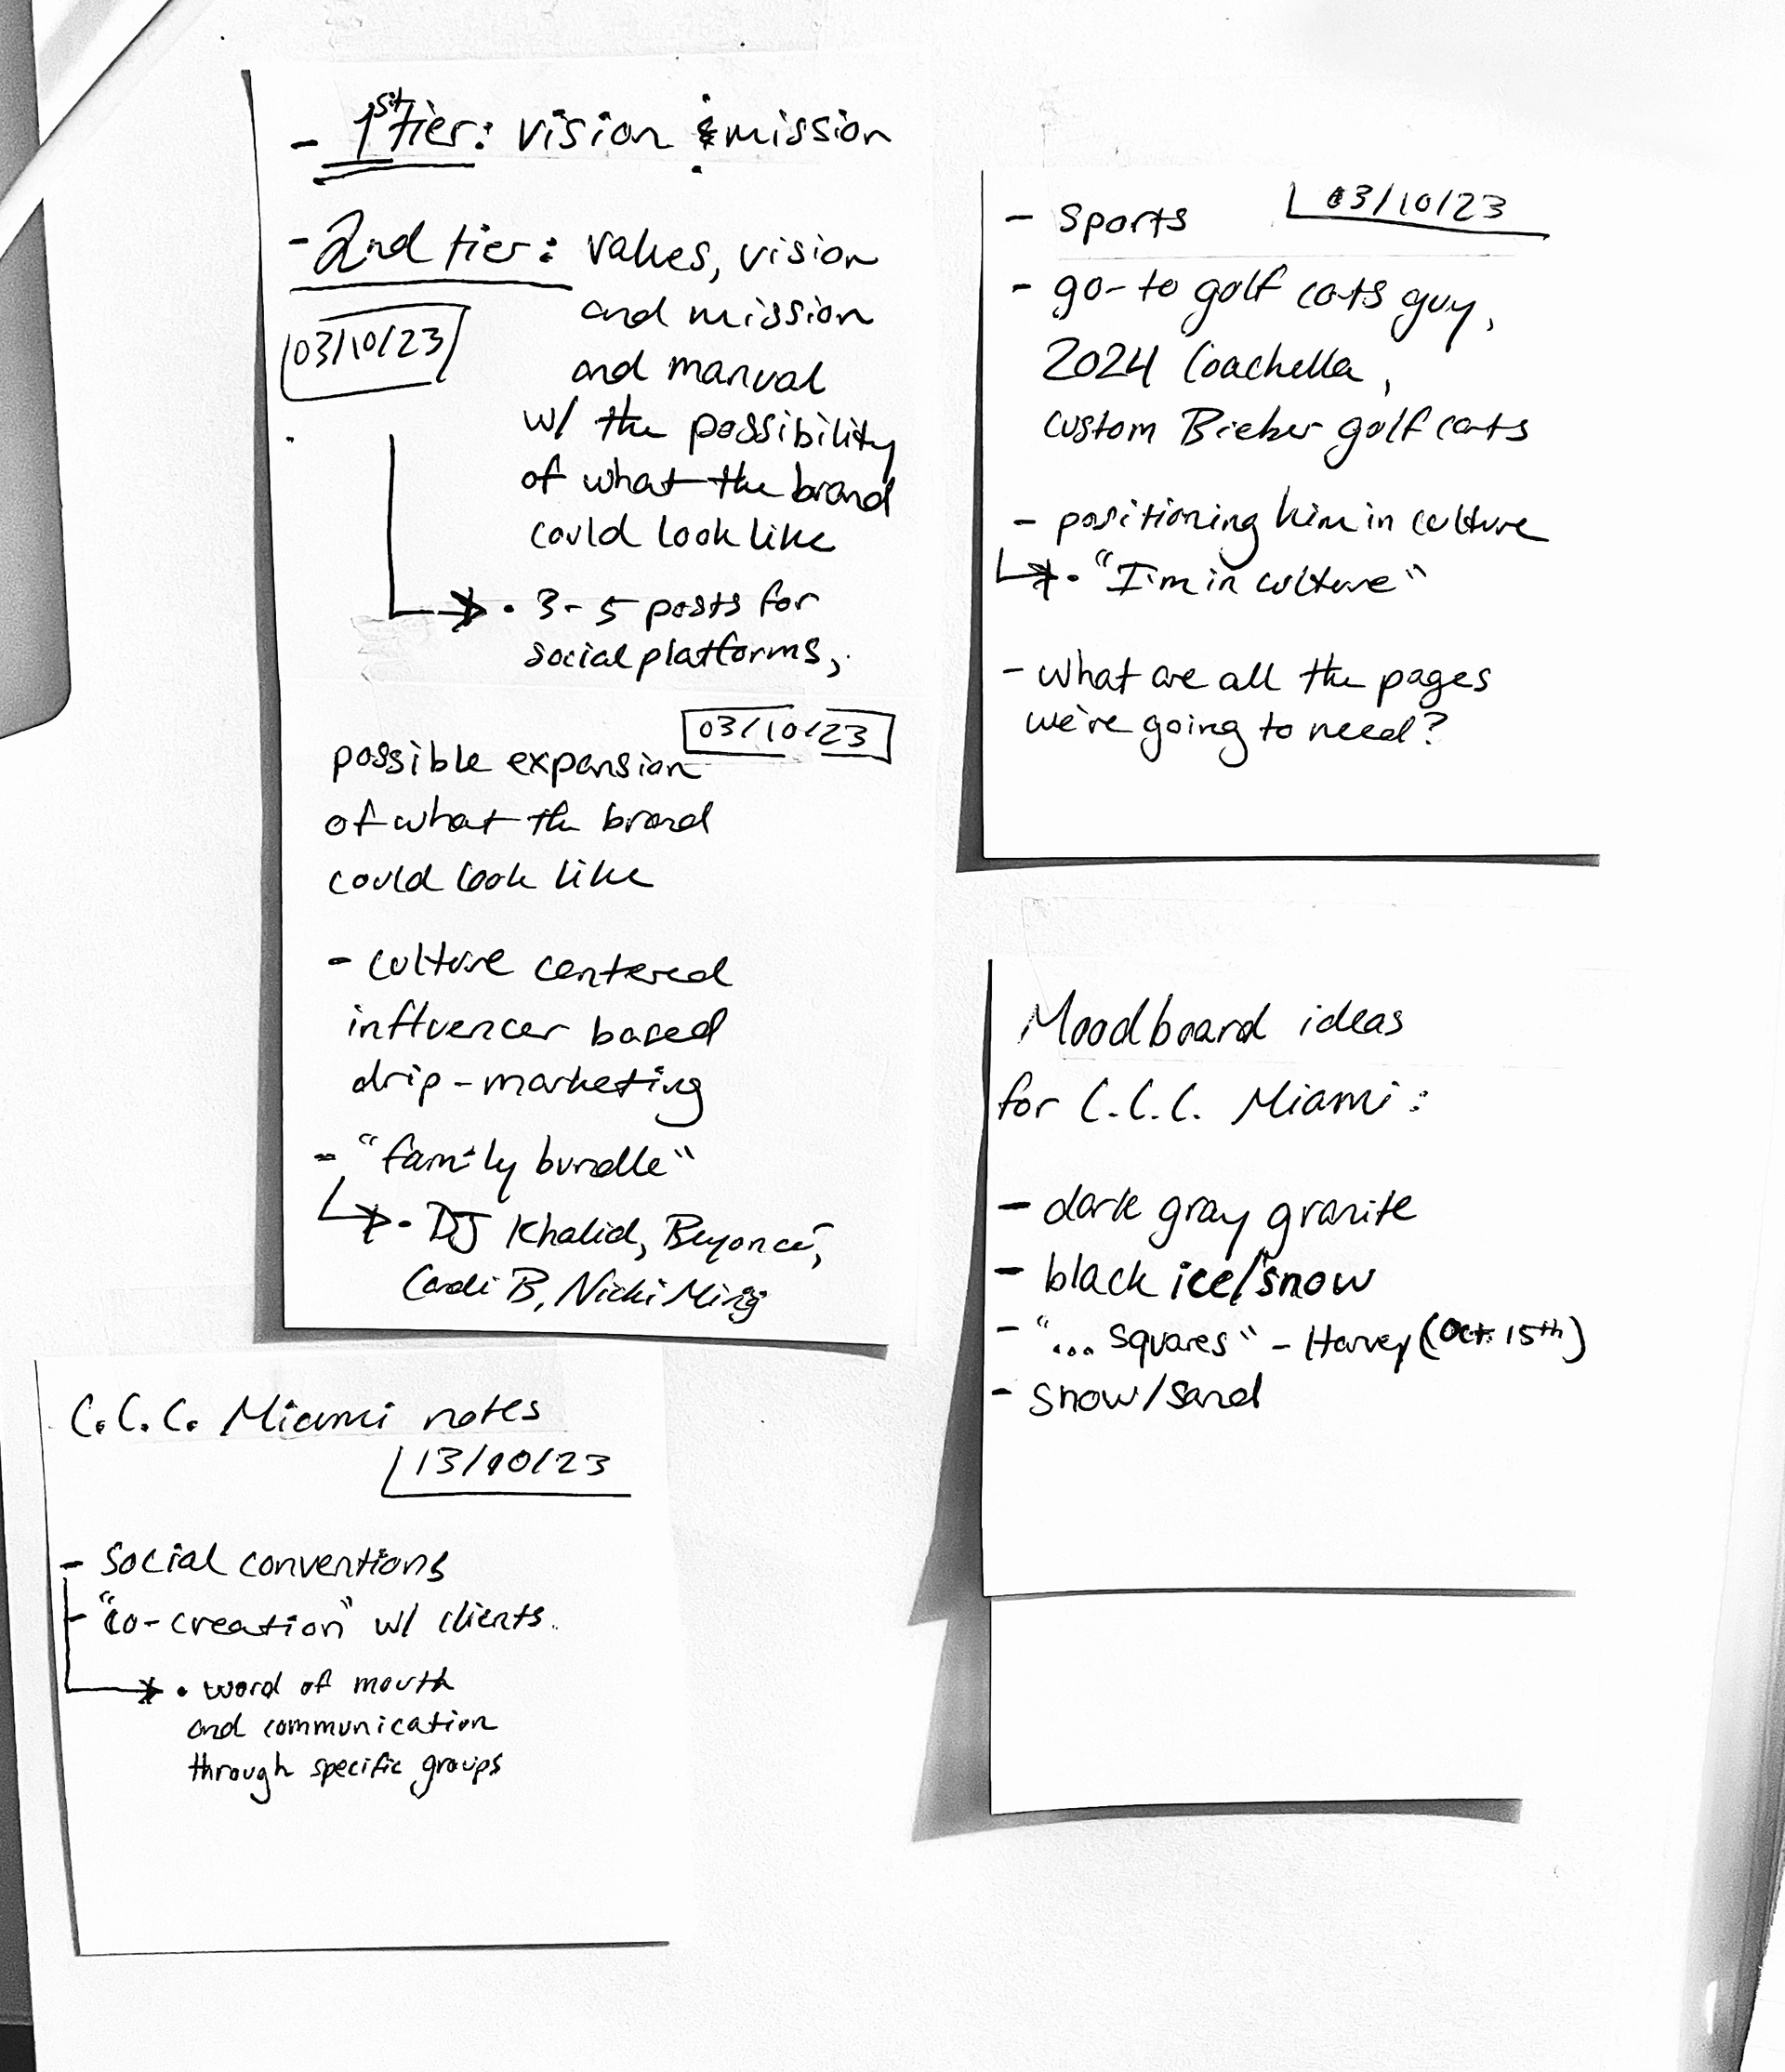 - 1st tier: vision & mission
- 2nd tier: values, vision
and mission
03/10/23
and manual
w/ the possibility
of what the brand
could look like
→ • 3-5 posts for
social platforms,
03/10/23
possible expansion
of what the brand
could look like
- culture centered
influencer based
drip-marketing
- "family bundle"
→ • DJ Khalid, Beyoncé,
Cardi B, Nicki Minaj
C.C.C. Miami notes
13/10/23
- social conventions
- "co-creation" w/ clients.
→ • word of mouth
and communication
through specific groups
03/10/23
- sports
- go-to golf carts guy,
2024 Coachella,
custom Bieber golf carts
- positioning him in culture
→ • "I'm in culture"
- what are all the pages
we're going to need?
Moodboard ideas
for C.C.C. Miami:
- dark gray granite
- black ice/snow
- "... squares" - Harvey (Oct. 15th)
- snow/sand